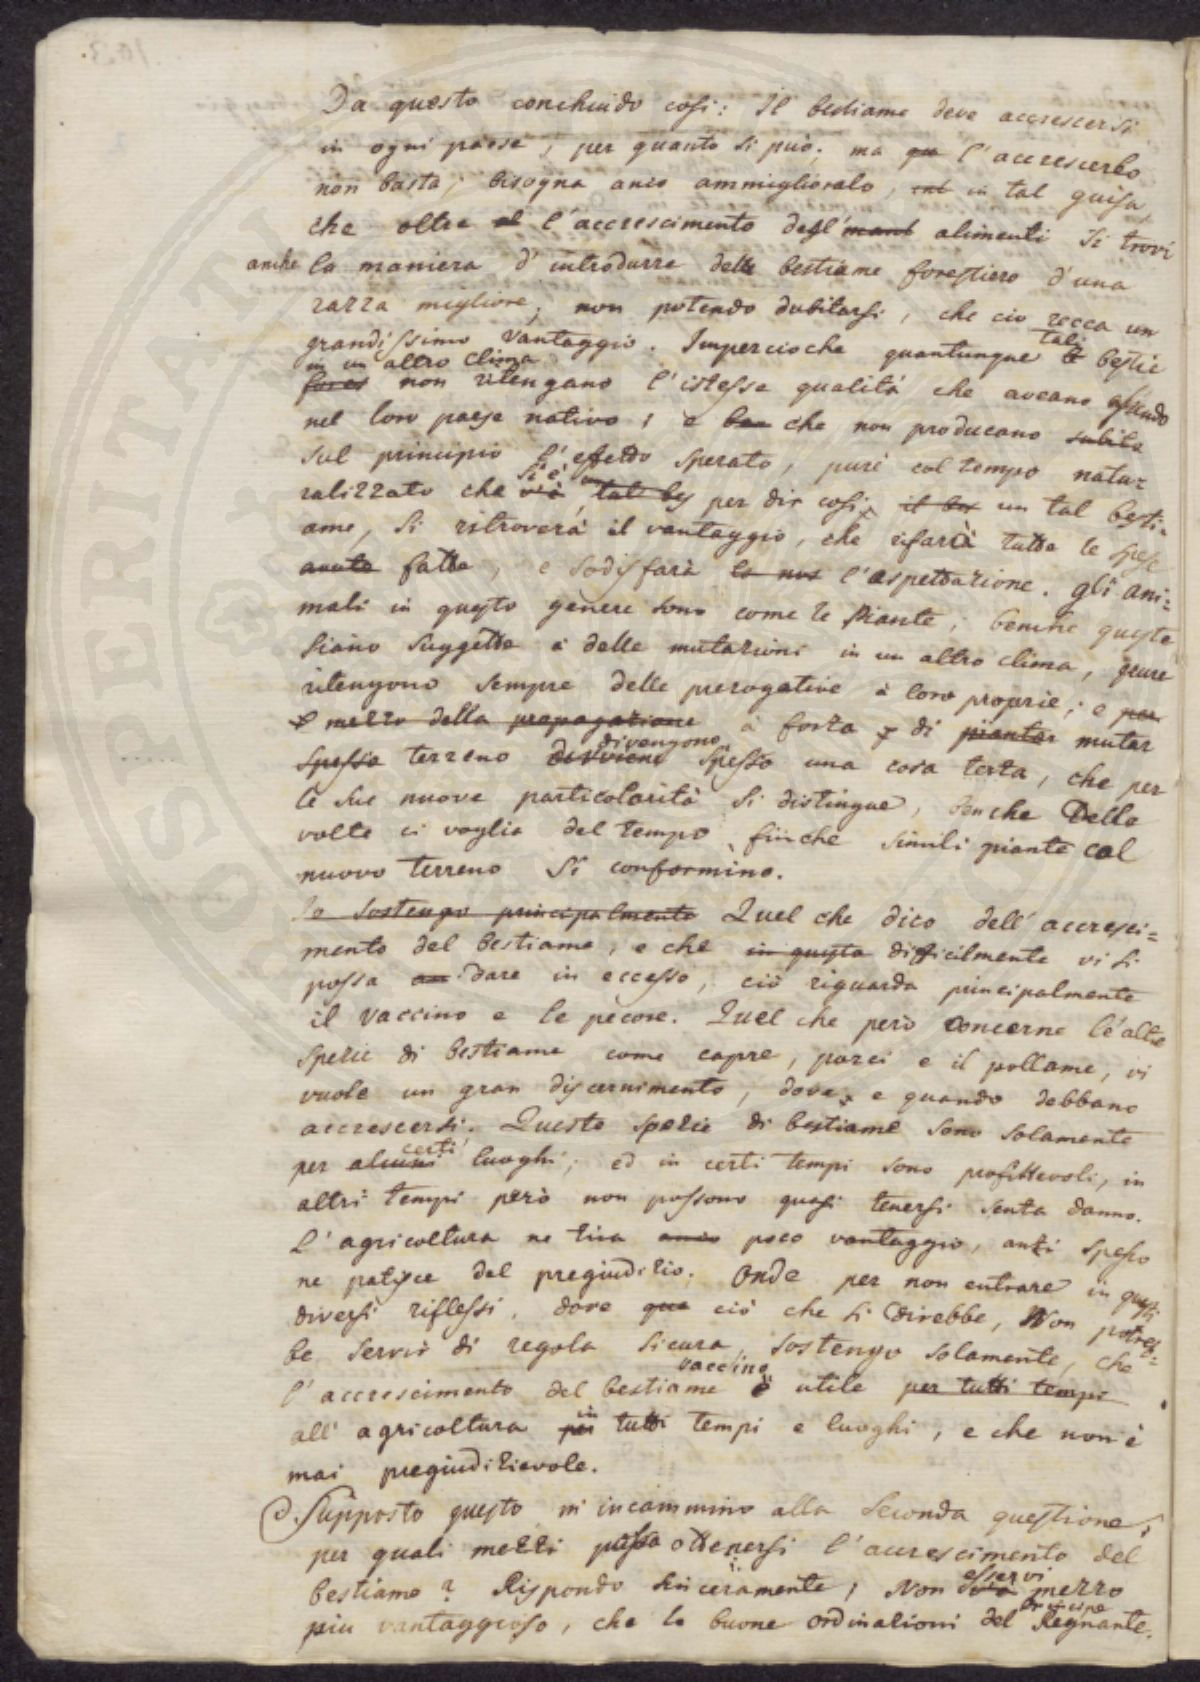 Da questo conchiudo cosi: Il bestiame deve accrescersi
in ogni paese, per quanto si può; ma l'accrescerlo
non basta; bisogna anco ammigliorarlo, in tal guisa,
che oltre l'accrescimento degl' alimenti si trovi
anche la maniera d'introdurre delle bestiame forestiero d'una
razza migliore; non potendo dubitarsi, che cio recca un
grandissimo vantaggio. Impercioche quantunque tali bestie
in un altro clima non ritengano l'istessa qualità che aveano essendo
nel loro paese nativo; e che non producano subito
sul principio l'effetto sperato, pure col tempo natu-
ralizzato che si è, per dir cosi, un tal besti-
ame, si ritroverà il vantaggio, che rifarà tutte le spese
fatte, e sodisfarà l'aspettazione. gli ani-
mali in questo genere sono come le Piante; benche queste
siano suggette a delle mutazioni in un altro clima, pure
ritengono sempre delle prerogative à loro proprie; e per
mezzo della propagazione à forza di piantar mutar
spesso terreno divengono spesso una cosa terza, che per
le sue nuove particolarità si distingue, benche delle
volte ci voglia del tempo, finche simili piante col
nuovo terreno si conformino.
Io sostengo principalmente Quel che dico dell' accresci-
mento del bestiame, e che in questo difficilmente vi si
possa dare in eccesso, ciò riguarda principalmente
il vaccino e le pecore. Quel che però concerne le altre
spezie di bestiame come capre, porci e il pollame, vi
vuole un gran discernimento, dove, e quando debbano
accrescersi. Queste spezie di bestiame sono solamente
per alcuni certi luoghi; ed in certi tempi sono profittevoli, in
altri tempi però non possono quasi tenersi senza danno.
L'agricoltura ne tira poco vantaggio, anzi spesso
ne patisce del pregiudizio. Onde per non entrare in questi
diversi riflessi, dove que ciò che si direbbe, Non potreb-
be servir di regola sicura, sostengo solamente, che
l'accrescimento del bestiame vaccino è utile per tutti tempi
all' agricoltura in tutti tempi e luoghi, e che non è
mai pregiudizievole.
Supposto questo m'incammino alla seconda questione;
per quali mezzi possa ottenersi l'accrescimento del
bestiame? Rispondo sinceramente, Non esservi mezzo
piu vantaggioso, che le buone ordinazioni del Principe Regnante.